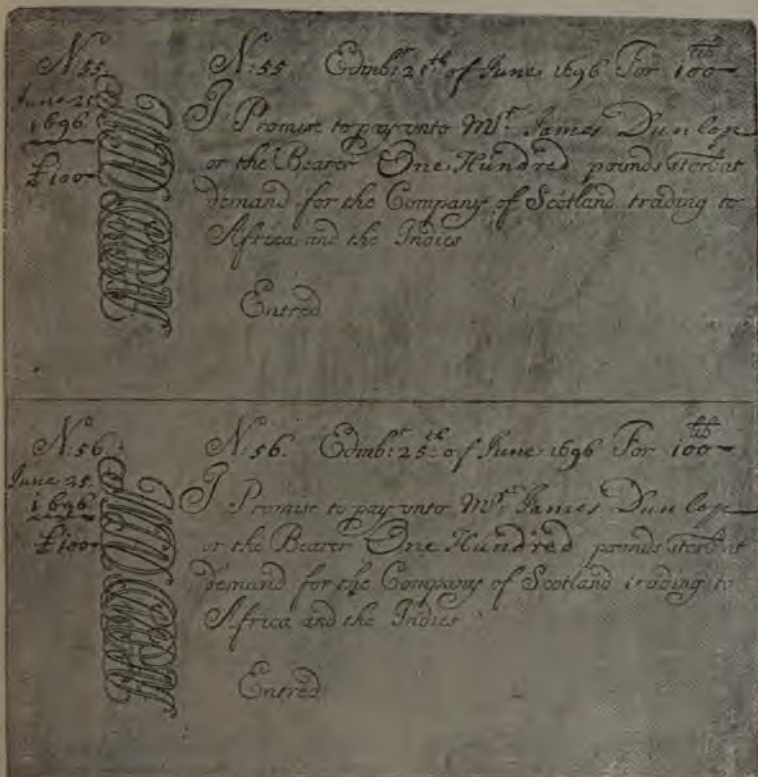 No. 55
June 25
1696
£100
No: 55 Edinbr: 25th of June 1696 For 100 lib
I Promise to pay unto Mr. James Dunlop
or the Bearer One Hundred pounds sterl at
demand for the Company of Scotland trading to
Africa and the Indies
Entred
No. 56
June 25.
1696
£100
No: 56. Edinbr: 25th of June 1696 For 100 lib
I Promise to pay unto Mr. James Dunlop
or the Bearer One Hundred pounds sterl at
demand for the Company of Scotland trading to
Africa and the Indies
Entred